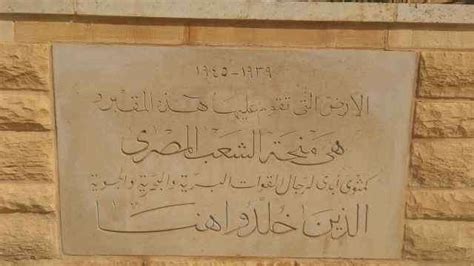 ١٩٣٩-١٩٤٥
الأرض التي تقوم عليها هذه المقبرة
هي منحة الشعب المصري
كمثوى أبدي لرجال القوات البرية والبحرية والجوية
الذين خلدوا هنا